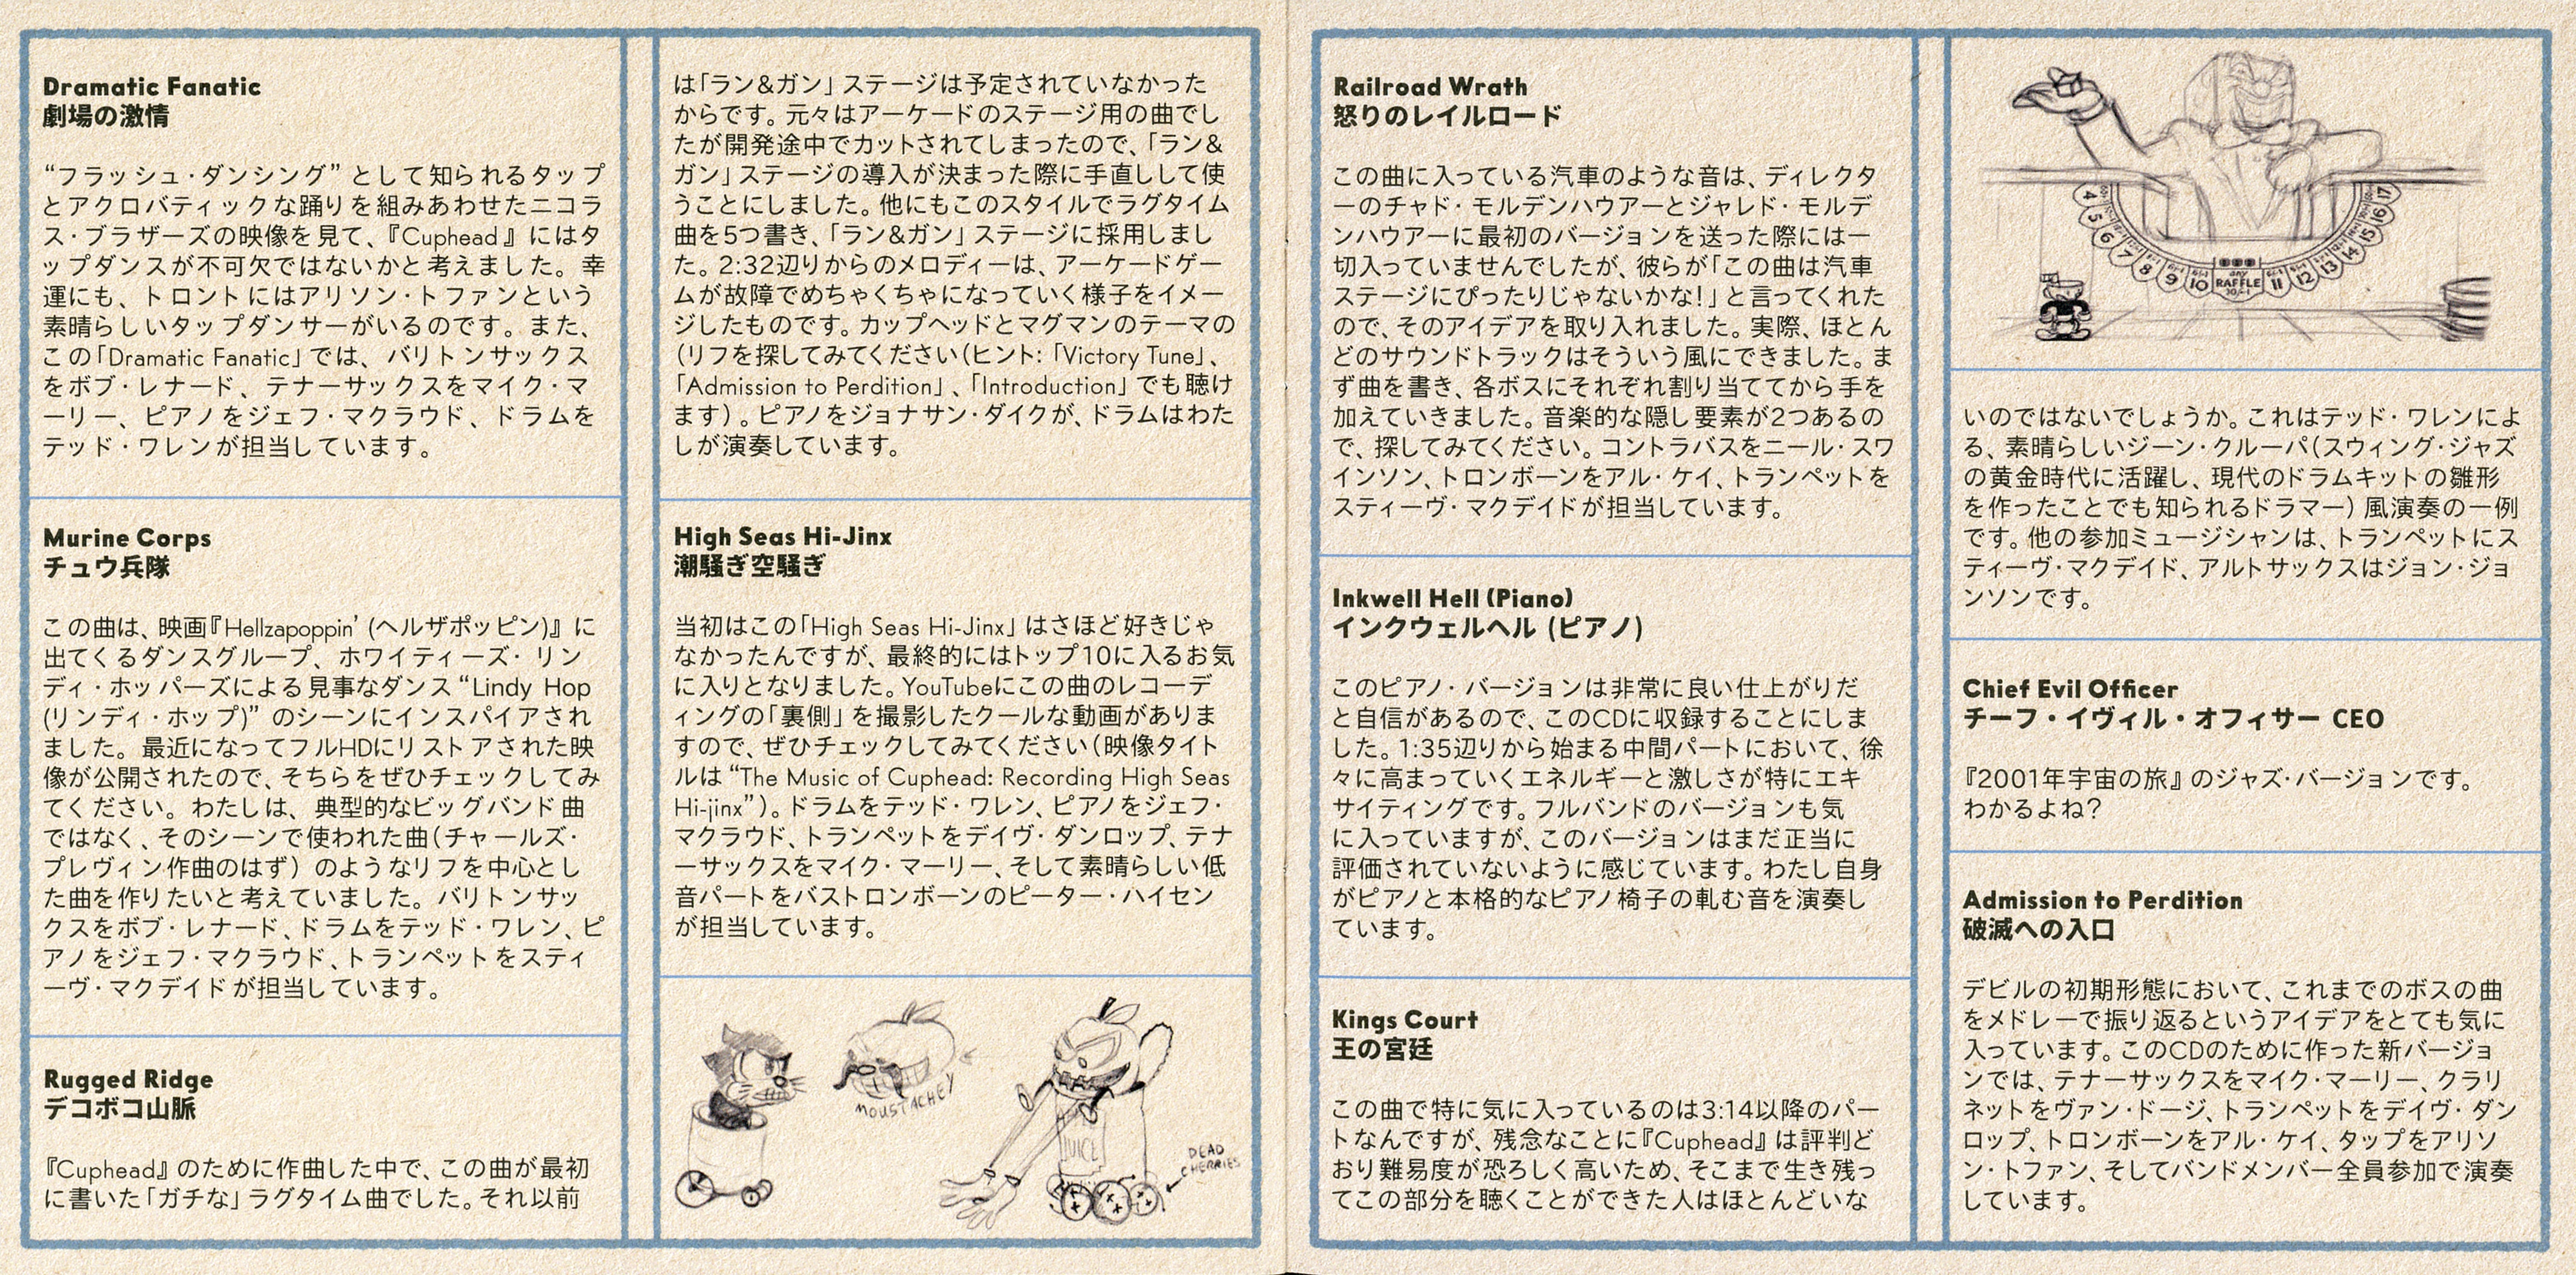 Dramatic Fanatic
劇場の激情
“フラッシュ・ダンシング” として知られるタップ
とアクロバティックな踊りを組みあわせたニコラ
ス・ブラザーズの映像を見て、『Cuphead』にはタ
ップダンスが不可欠ではないかと考えました。幸
運にも、トロントにはアリソン・トファンという
素晴らしいタップダンサーがいるのです。また、
この「Dramatic Fanatic」では、バリトンサックス
をボブ・レナード、テナーサックスをマイク・マ
ーリー、ピアノをジェフ・マクラウド、ドラムを
テッド・ワレンが担当しています。
Murine Corps
チュウ兵隊
この曲は、映画『Hellzapoppin’ (ヘルザポッピン)』に
出てくるダンスグループ、ホワイティーズ・リン
ディ・ホッパーズによる見事なダンス “Lindy Hop
(リンディ・ホップ)” のシーンにインスパイアされ
ました。最近になってフルHDにリストアされた映
像が公開されたので、そちらをぜひチェックしてみ
てください。わたしは、典型的なビッグバンド曲
ではなく、そのシーンで使われた曲(チャールズ・
プレヴィン作曲のはず) のようなリフを中心とし
た曲を作りたいと考えていました。バリトンサッ
クスをボブ・レナード、ドラムをテッド・ワレン、ピ
アノをジェフ・マクラウド、トランペットをスティ
ーヴ・マクデイドが担当しています。
Rugged Ridge
デコボコ山脈
『Cuphead』のために作曲した中で、この曲が最初
に書いた「ガチな」ラグタイム曲でした。それ以前
は「ラン&ガン」ステージは予定されていなかった
からです。元々はアーケードのステージ用の曲でし
たが開発途中でカットされてしまったので、「ラン&
ガン」ステージの導入が決まった際に手直しして使
うことにしました。他にもこのスタイルでラグタイム
曲を5つ書き、「ラン&ガン」ステージに採用しまし
た。2:32辺りからのメロディーは、アーケードゲー
ムが故障でめちゃくちゃになっていく様子をイメー
ジしたものです。カップヘッドとマグマンのテーマの
(リフを探してみてください(ヒント: 「Victory Tune」、
「Admission to Perdition」、「Introduction」でも聴け
ます)。ピアノをジョナサン・ダイクが、ドラムはわた
しが演奏しています。
High Seas Hi-Jinx
潮騒ぎ空騒ぎ
当初はこの「High Seas Hi-Jinx」はさほど好きじゃ
なかったんですが、最終的にはトップ10に入るお気
に入りとなりました。YouTubeにこの曲のレコーデ
ィングの「裏側」を撮影したクールな動画がありま
すので、ぜひチェックしてみてください(映像タイト
ルは “The Music of Cuphead: Recording High Seas
Hi-jinx”)。ドラムをテッド・ワレン、ピアノをジェフ・
マクラウド、トランペットをデイヴ・ダンロップ、テナ
ーサックスをマイク・マーリー、そして素晴らしい低
音パートをバストロンボーンのピーター・ハイセン
が担当しています。
MOUSTACHEY
JUICE
DEAD
CHERRIES
Railroad Wrath
怒りのレイルロード
この曲に入っている汽車のような音は、ディレクタ
ーのチャド・モルデンハウアーとジャレド・モルデ
ンハウアーに最初のバージョンを送った際には一
切入っていませんでしたが、彼らが「この曲は汽車
ステージにぴったりじゃないかな!」と言ってくれた
ので、そのアイデアを取り入れました。実際、ほとん
どのサウンドトラックはそういう風にできました。ま
ず曲を書き、各ボスにそれぞれ割り当ててから手を
加えていきました。音楽的な隠し要素が2つあるの
で、探してみてください。コントラバスをニール・スワ
インソン、トロンボーンをアル・ケイ、トランペットを
スティーヴ・マクデイドが担当しています。
Inkwell Hell (Piano)
インクウェルヘル (ピアノ)
このピアノ・バージョンは非常に良い仕上がりだ
と自信があるので、このCDに収録することにしま
した。1:35辺りから始まる中間パートにおいて、徐
々に高まっていくエネルギーと激しさが特にエキ
サイティングです。フルバンドのバージョンも気
に入っていますが、このバージョンはまだ正当に
評価されていないように感じています。わたし自身
がピアノと本格的なピアノ椅子の軋む音を演奏し
ています。
Kings Court
王の宮廷
この曲で特に気に入っているのは3:14以降のパー
トなんですが、残念なことに『Cuphead』は評判ど
おり難易度が恐ろしく高いため、そこまで生き残っ
てこの部分を聴くことができた人はほとんどいな
4 5 6 7 8 9 10 ANY RAFFLE 11 12 13 14 15 16 17
いのではないでしょうか。これはテッド・ワレンによ
る、素晴らしいジーン・クルーパ(スウィング・ジャズ
の黄金時代に活躍し、現代のドラムキットの雛形
を作ったことでも知られるドラマー) 風演奏の一例
です。他の参加ミュージシャンは、トランペットにス
ティーヴ・マクデイド、アルトサックスはジョン・ジョ
ンソンです。
Chief Evil Officer
チーフ・イヴィル・オフィサー CEO
『2001年宇宙の旅』のジャズ・バージョンです。
わかるよね?
Admission to Perdition
破滅への入口
デビルの初期形態において、これまでのボスの曲
をメドレーで振り返るというアイデアをとても気に
入っています。このCDのために作った新バージョ
ンでは、テナーサックスをマイク・マーリー、クラリ
ネットをヴァン・ドージ、トランペットをデイヴ・ダン
ロップ、トロンボーンをアル・ケイ、タップをアリソ
ン・トファン、そしてバンドメンバー全員参加で演奏
しています。